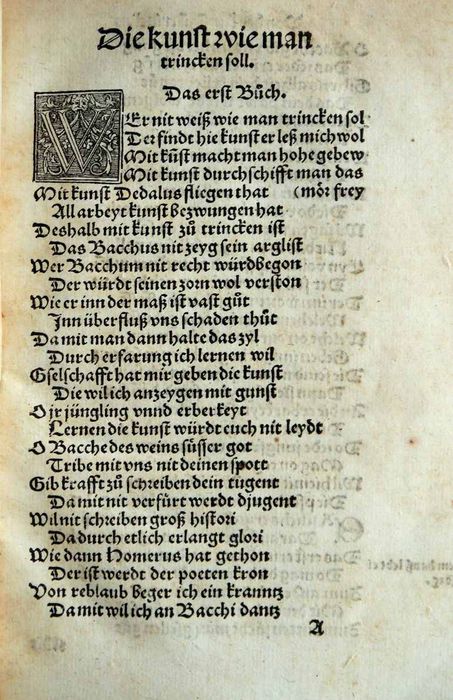 Die kunst wie man
trincken soll.
Das erst Bůch.
WEr nit weiß wie man trincken sol
Der findt hie kunst er leß mich wol
Mit kůst macht man hohe gebew
Mit kunst durchschifft man das
Mit kunst Dedalus fliegen that (mör frey
All arbeyt kunst bezwungen hat
Deshalb mit kunst zů trincken ist
Das Bacchus nit zeyg sein arglist
Wer Bacchum nit recht würd begon
Der würdt seinen zorn wol verston
Wie er inn der maß ist vast gůt
Inn überfluß vns schaden thůt
Da mit man dann halte das zyl
Durch erfarung ich lernen wil
Gselschafft hat mir geben die kunst
Die wil ich anzeygen mit gunst
O jr jüngling vnnd erberkeyt
Lernen die kunst würdt euch nit leydt
O Bacche des weins süsser got
Tribe mit vns nit deinen spott
Gib krafft zů schreiben dein tugent
Da mit nit verfürt werdt djugent
Wil nit schreiben groß histori
Da durch etlich erlangt glori
Wie dann Homerus hat gethon
Der ist werdt der poeten kron
Von reblaub beger ich ein krantz
Da mit wil ich an Bacchi dantz
A